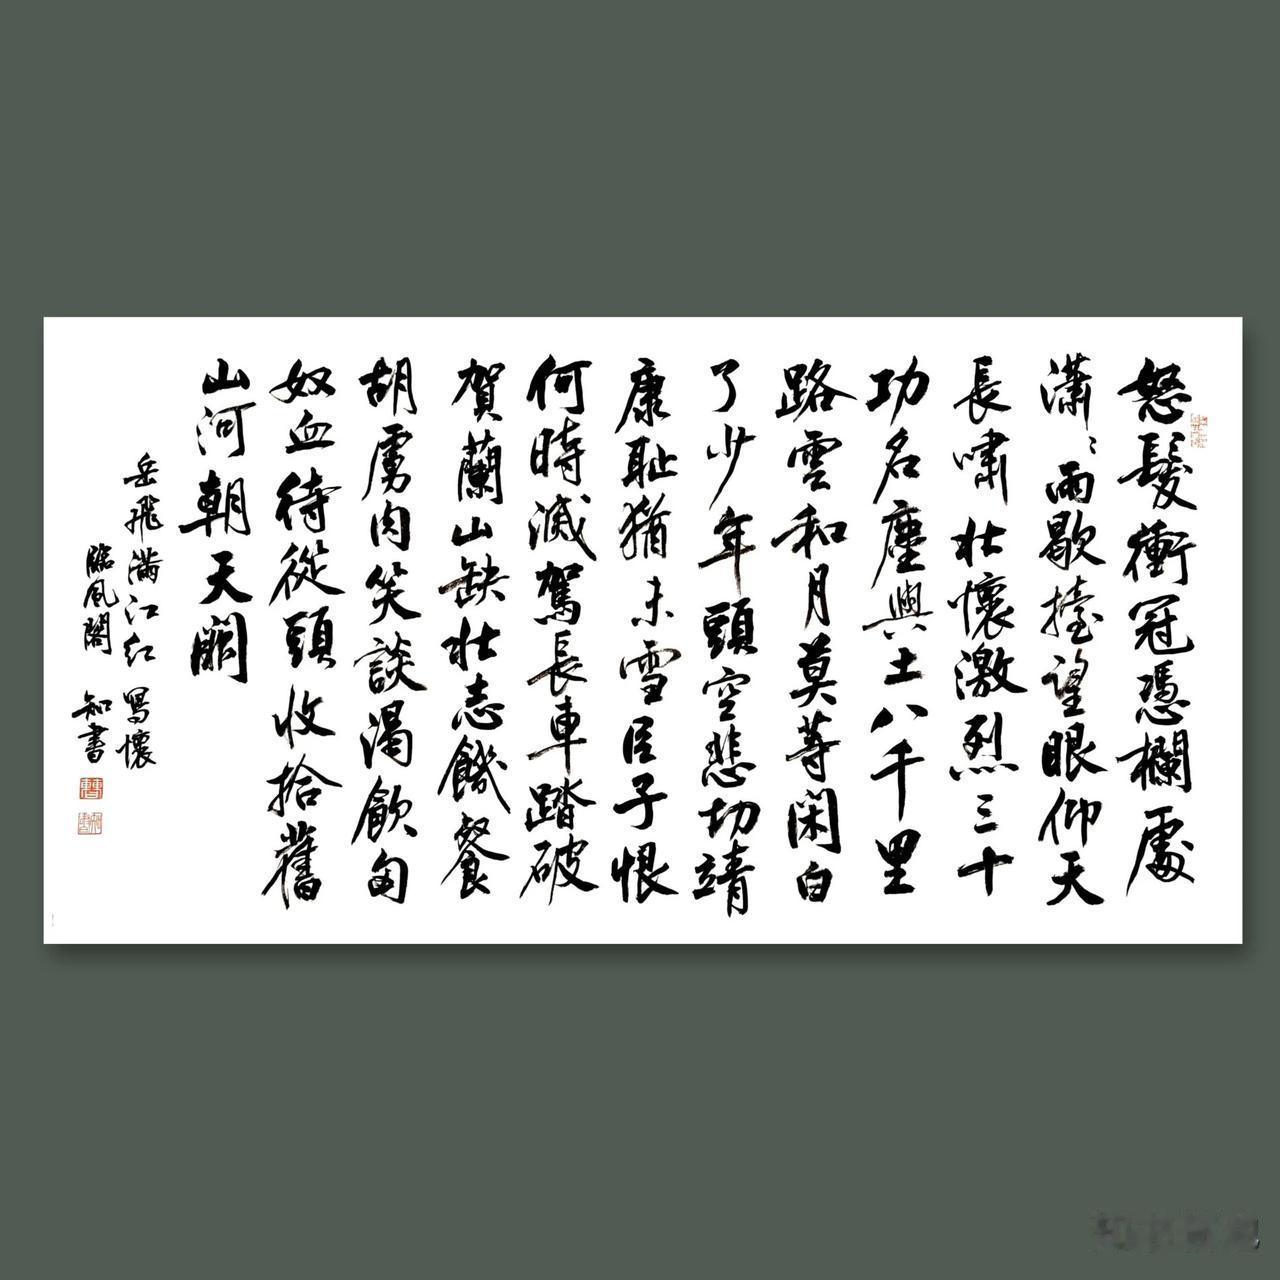 怒髮衝冠憑欄處
潇〻雨歇擡望眼仰天
長嘯壮懷激烈三十
功名塵與土八千里
路雲和月莫等閑白
了少年頭空悲切靖
康耻猶未雪臣子恨
何時滅駕長車踏破
賀蘭山缺壮志饑餐
胡虜肉笑談渴飲匈
奴血待從頭收拾舊
山河朝天闕
岳飛满江红 寫懷
臨風閣 知書